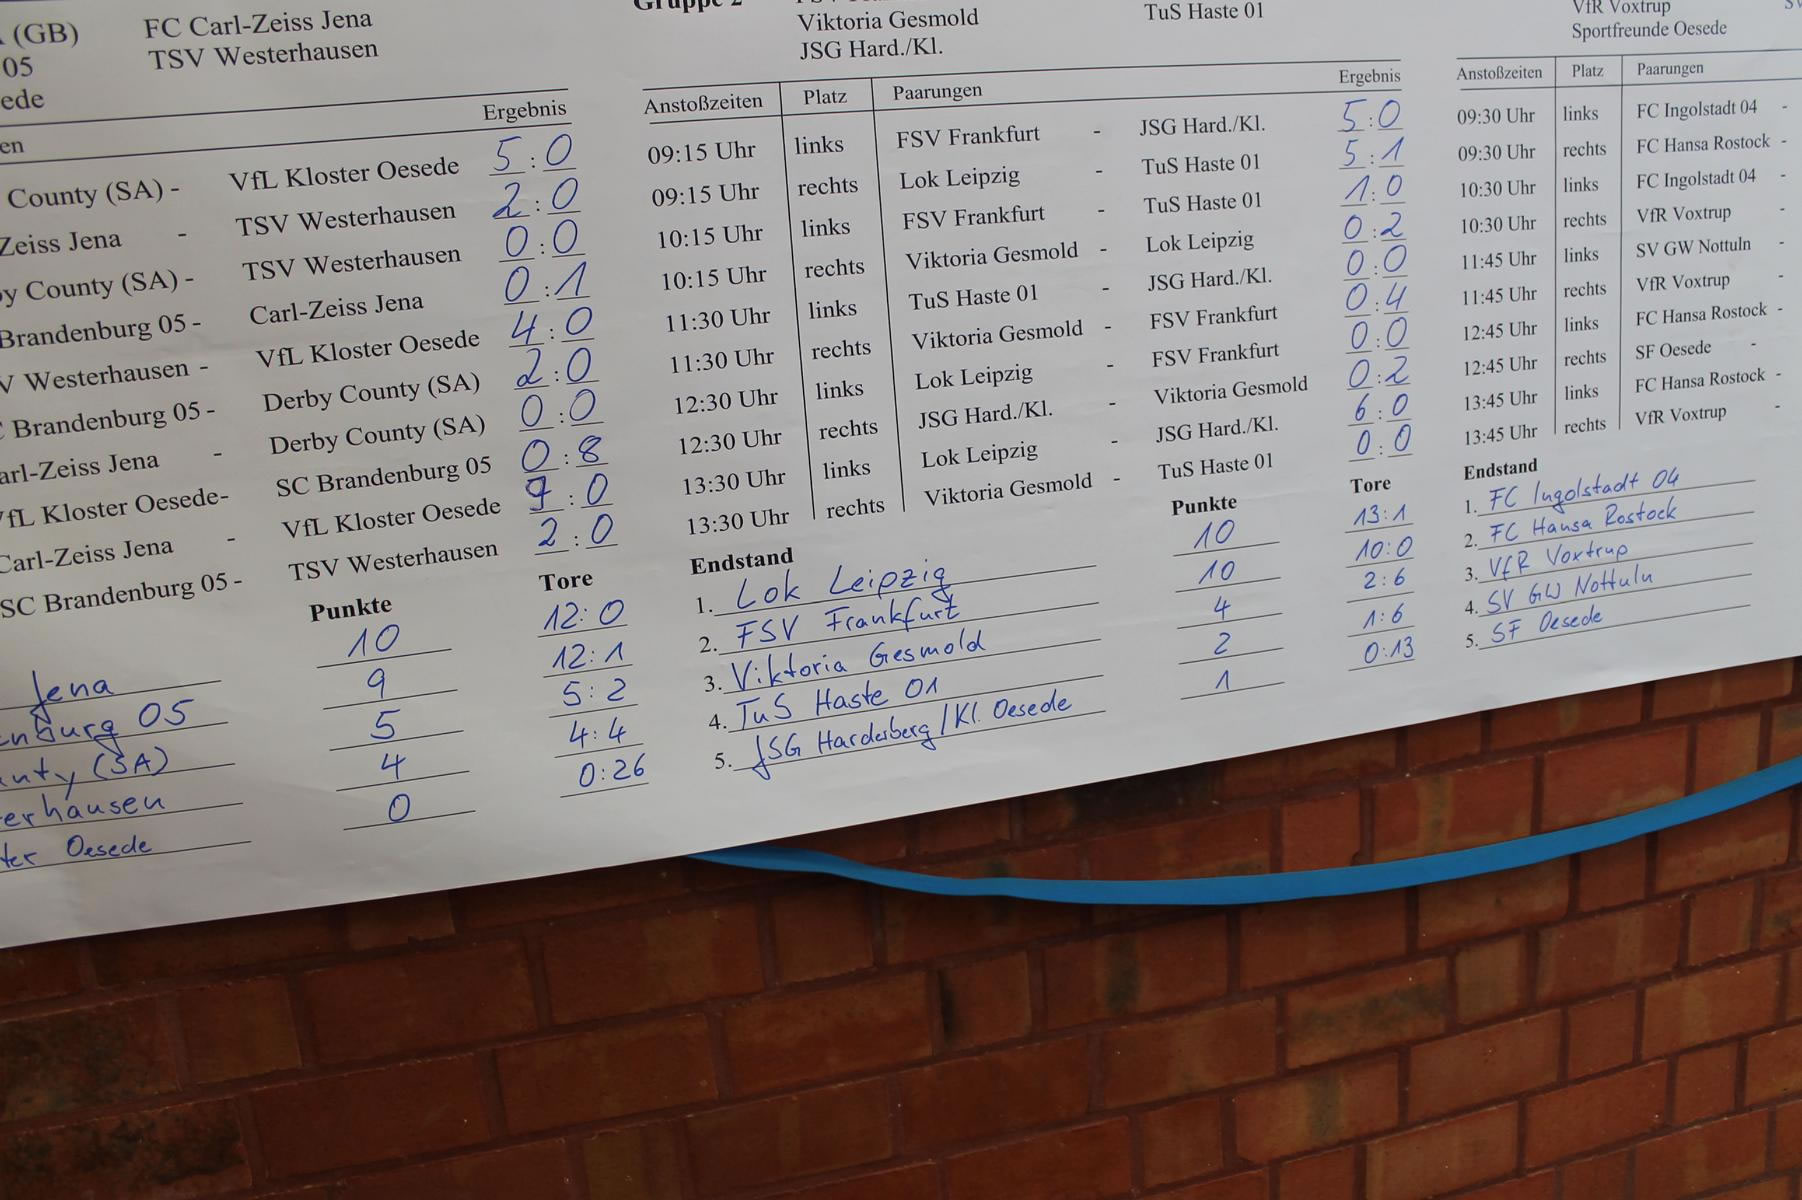 (GB) FC Carl-Zeiss Jena
05 TSV Westerhausen
ede
Ergebnis
en
County (SA) - VfL Kloster Oesede 5:0
Zeiss Jena - TSV Westerhausen 2:0
y County (SA) - TSV Westerhausen 0:0
Brandenburg 05 - Carl-Zeiss Jena 0:1
V Westerhausen - VfL Kloster Oesede 4:0
C Brandenburg 05 - Derby County (SA) 2:0
arl-Zeiss Jena - Derby County (SA) 0:0
VfL Kloster Oesede- SC Brandenburg 05 0:8
Carl-Zeiss Jena - VfL Kloster Oesede 9:0
SC Brandenburg 05 - TSV Westerhausen 2:0
Punkte Tore
Jena 10 12:0
nburg 05 9 12:1
unty (SA) 5 5:2
erhausen 4 4:4
ter Oesede 0 0:26
Gruppe 2
Viktoria Gesmold TuS Haste 01
JSG Hard./Kl.
Anstoßzeiten Platz Paarungen Ergebnis
09:15 Uhr links FSV Frankfurt - JSG Hard./Kl. 5:0
09:15 Uhr rechts Lok Leipzig - TuS Haste 01 5:1
10:15 Uhr links FSV Frankfurt - TuS Haste 01 1:0
10:15 Uhr rechts Viktoria Gesmold - Lok Leipzig 0:2
11:30 Uhr links TuS Haste 01 - JSG Hard./Kl. 0:0
11:30 Uhr rechts Viktoria Gesmold - FSV Frankfurt 0:4
12:30 Uhr links Lok Leipzig - FSV Frankfurt 0:0
12:30 Uhr rechts JSG Hard./Kl. - Viktoria Gesmold 0:2
13:30 Uhr links Lok Leipzig - JSG Hard./Kl. 6:0
13:30 Uhr rechts Viktoria Gesmold - TuS Haste 01 0:0
Endstand Punkte Tore
1. Lok Leipzig 10 13:1
2. FSV Frankfurt 10 10:0
3. Viktoria Gesmold 4 2:6
4. TuS Haste 01 2 1:6
5. JSG Harderberg/Kl. Oesede 1 0:13
VfR Voxtrup
Sportfreunde Oesede
Anstoßzeiten Platz Paarungen
09:30 Uhr links FC Ingolstadt 04 -
09:30 Uhr rechts FC Hansa Rostock -
10:30 Uhr links FC Ingolstadt 04 -
10:30 Uhr rechts VfR Voxtrup -
11:45 Uhr links SV GW Nottuln -
11:45 Uhr rechts VfR Voxtrup -
12:45 Uhr links FC Hansa Rostock -
12:45 Uhr rechts SF Oesede -
13:45 Uhr links FC Hansa Rostock -
13:45 Uhr rechts VfR Voxtrup -
Endstand
1. FC Ingolstadt 04
2. FC Hansa Rostock
3. VfR Voxtrup
4. SV GW Nottuln
5. SF Oesede